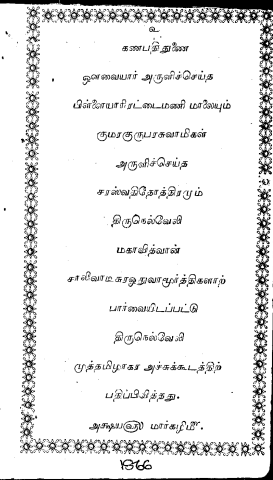 உ
கணபதி துணை
ஔவையார் அருளிச்செய்த
பிள்ளையாரிரட்டைமணி மாலையும்
குமரகுருபரசுவாமிகள்
அருளிச்செய்த
சரஸ்வதிதோத்திரமும்
திருநெல்வேலி
மகாவித்வான்
சாலிவாடீசுரஓதுவாமூர்த்திகளாற்
பார்வையிடப்பட்டு
திருநெல்வேலி
முத்தமிழாகர அச்சுக்கூடத்திற்
பதிப்பிக்கித்தது.
அக்ஷயஞூ மார்கழிமீ.
1866